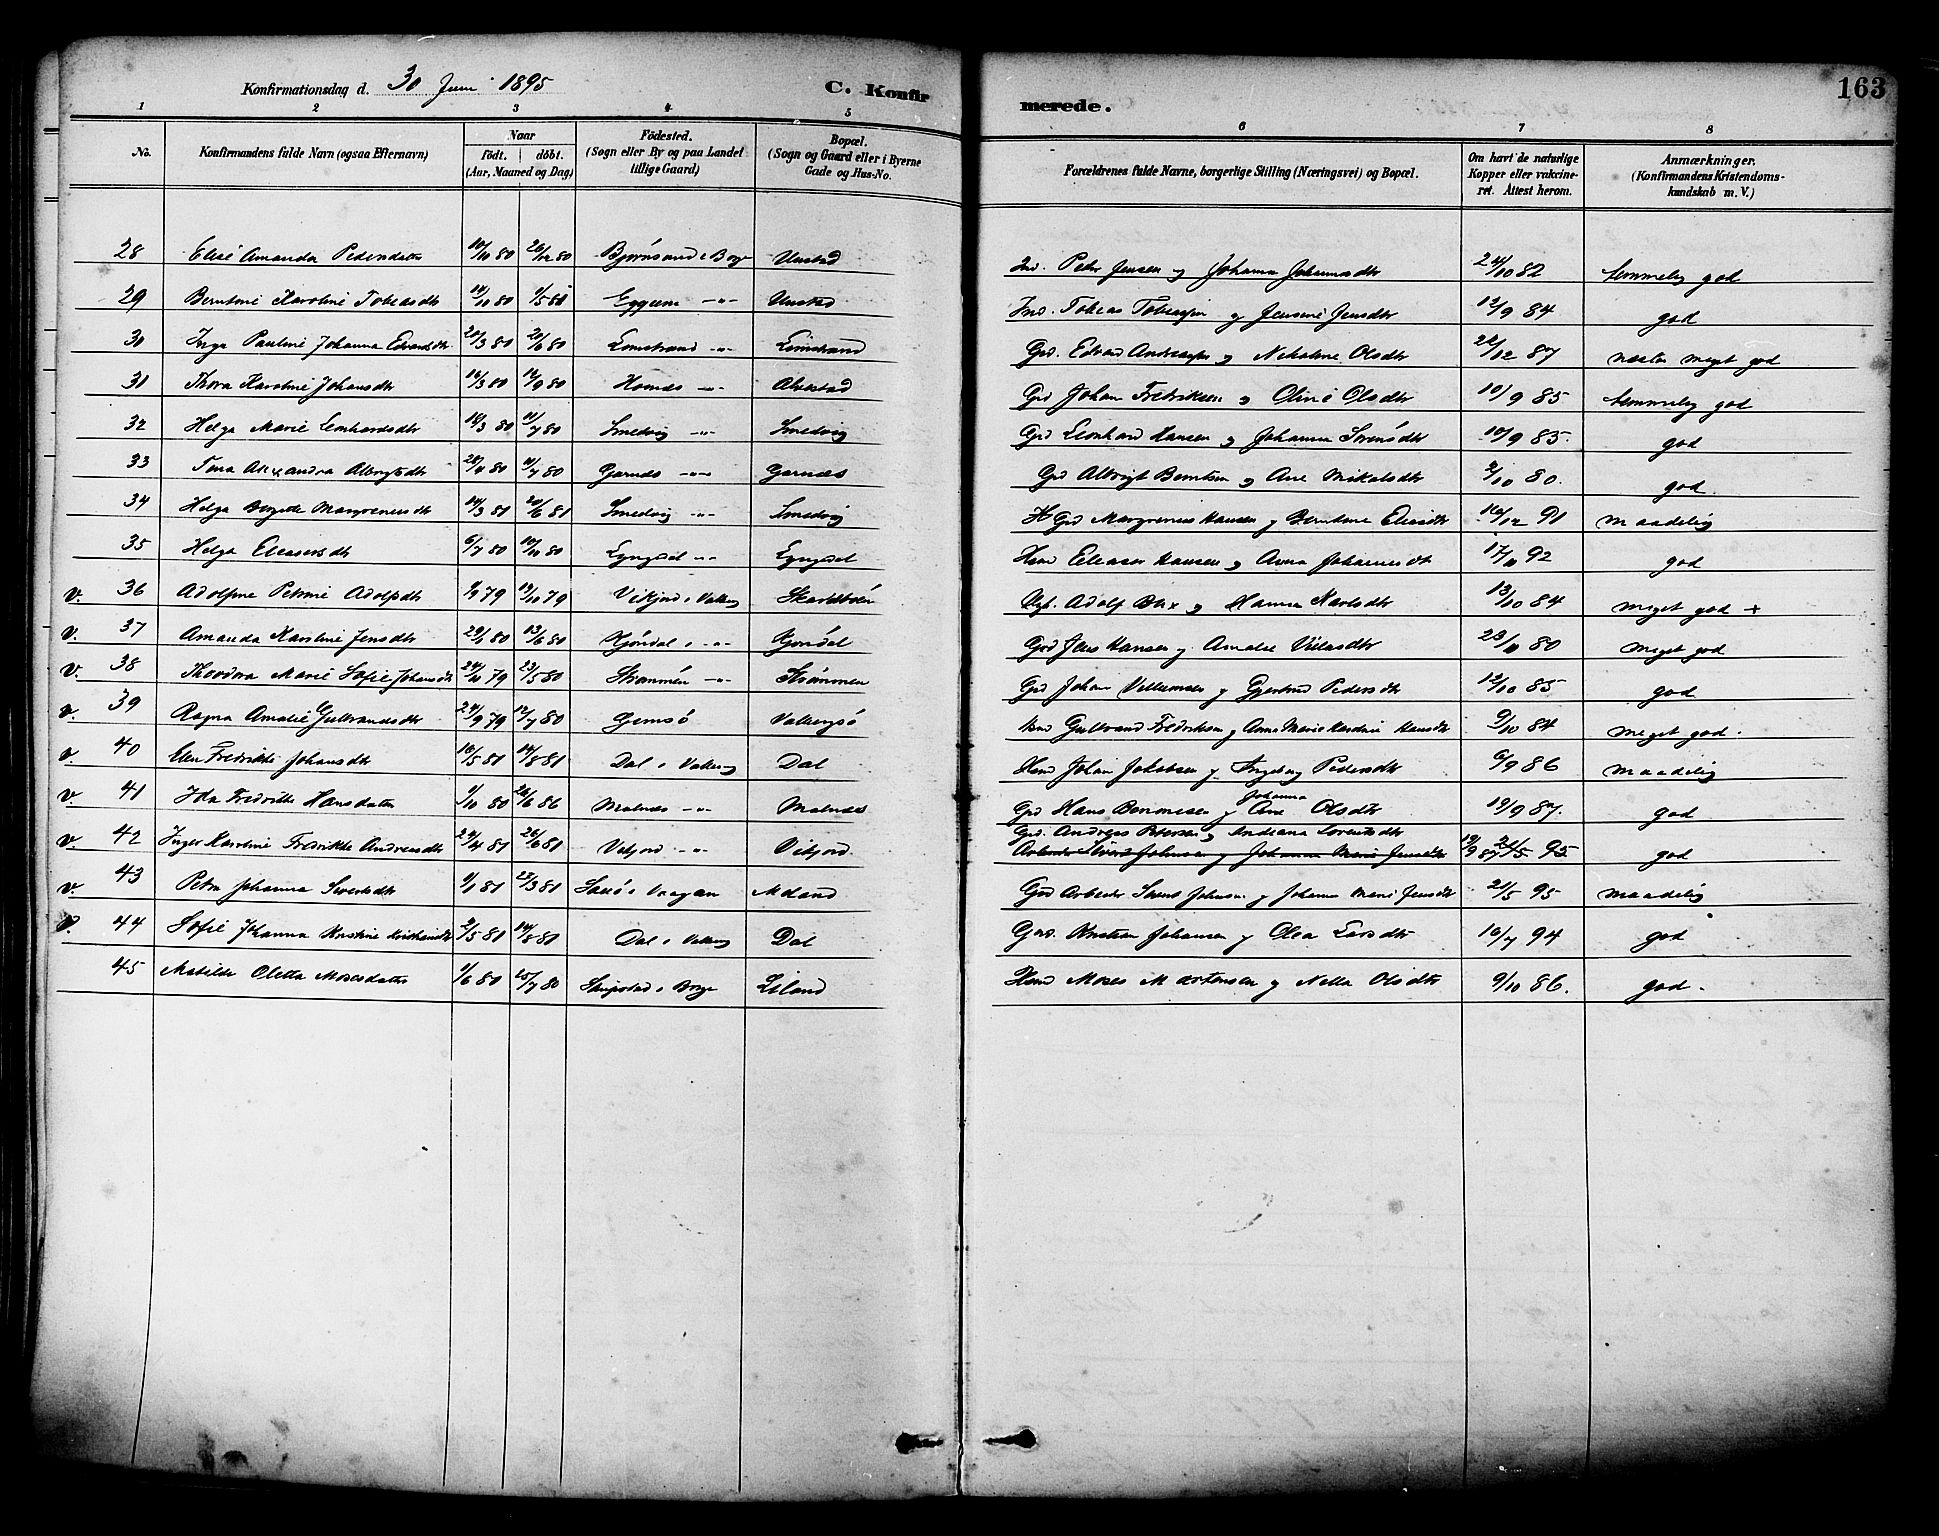 Konfirmationsdag d. 30 Juni 1895 C. Konfir
merede. 163
1 2 3 4 5 6 7 8
No. Konfirmandens fulde Navn (ogsaa Efternavn) Naar Födt. döbt. (Aar, Maaned og Dag) Födested. (Sogn eller By og paa Landet tillige Gaard) Bopæl. (Sogn og Gaard eller i Byerne Gade og Hus-No. Forældrenes fulde Navne, borgerlige Stilling (Næringsvei) og Bopæl. Om havt de naturlige Kopper eller vakcineret. Attest herom. Anmærkninger. (Konfirmandens Kristendomskundskab m. V.)
28 Elise Amanda Pedersdatter 10/10 80 26/12 80 Bjørnsand i Borge Unstad Ind. Peder Jensen og Johanna Johannesdtr 24/10 82 temmelig god
29 Berntine Karoline Tobiasdtr 14/10 80 1/5 81 Eggum -"- Unstad Ind. Tobias Tobiassen og Jensine Jensdtr 12/9 84 god
30 Inga Pauline Johanna Edvardsdtr 20/3 80 20/6 80 Limstrand -"- Limstrand Grd. Edvard Andreassen og Nikoline Olsdtr 22/12 87 næsten meget god
31 Thora Karoline Johansdtr 16/3 80 12/9 80 Hornæs -"- Alvestad Grd Johan Fredriksen og Oline Olsdtr 10/9 85 temmelig god
32 Helga Marie Lenhardsdtr 18/3 80 11/7 80 Smedvig -"- Smedvig Grd Leonhard Hansen og Johanna Sørensdtr 10/9 85. god
33 Tina Alexandra Albrigtsdtr 28/4 80 11/7 80 Gjernæs -"- Gjernæs Grd Albrigt Berntsen og Ane Mikalsdtr 2/10 80. god.
34 Helga Bergitte Margreneusdtr 14/3 81 20/6 81 Smedvig -"- Smedvig Grd Margreneus Hansen og Berntine Eliasdtr 16/12 91 maadelig
35 Helga Eleasersdtr 6/7 80 10/10 80 Lyngedal -"- Lyngedal Hsmd Eleaser Hansen og Anna Johannesdtr 17/11 92 god
v. 36 Adolfine Petrine Adolfsdtr 1/9 79 19/10 79 Vikjord i Valberg Skarsbøen Adolf Blix og Hanna Karlsdtr 13/10 84 meget god +
v. 37 Amanda Karoline Jensdtr 29/1 80 13/6 80 Gjøndal i -"- Gjøndal Grd Jens Hansen og Amalie Nilsdtr 23/11 80 meget god
v. 38 Theodora Marie Sofie Johansdtr 24/11 79 23/5 80 Strømmen -"- Strømmen Grd Johan Villumsen og Gjertrud Pedersdtr 12/10 85 god
v. 39 Ragna Amalie Gulbrandsdtr 24/9 79 12/7 80 Gimsø Valbergsø Gulbrand Fredriksen og Anne Marie Karoline Hansdtr 9/10 84 meget god.
v. 40 Elen Fredrikke Johansdtr 16/5 81 14/8 81 Dal i Valberg Dal Hsmd Johan Jakobsen og Ingeborg Pedersdtr 6/9 86 maadelig
v. 41 Ida Fredrikke Hansdatter 1/10 80 26/6 86 Malnæs -"- Malnæs Grd Hans Benonisen og Johanna Ane Olsdtr 19/9 87. god
v. 42 Inger Karoline Fredrikke Andreasdtr 24/4 81 26/6 81 Vikjord -"- Vikjord. Grd. Andreas Petersen og Andrea Lorentsdtr
Arbeider Sivert Johnsen og Johanna Marie Jensdtr 19/9 87 21/5 95 god
v. 43 Petra Johanna Sivertsdtr 1/1 81 27/3 81 i Vaagan Meland Grd Arbeider Sivert Johnsen og Johanna Marie Jensdtr 21/5 95 maadelig
v. 44 Sofie Johanna Kristine Kristiansdtr 2/5 81 14/8 81 Dal i Valberg Dal Grd. Kristian Johansen og Olea Larsdtr 16/7 94 god
45 Matilde Oletta Mosesdatter 1/6 80 25/7 80 i Borge Liland Hsmd Moses Mortensen og Nella Olsdtr 9/10 86. god.